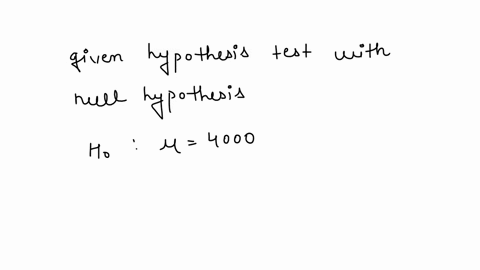 given hypothesis test with
null hypothesis
H₀ : μ = 4000